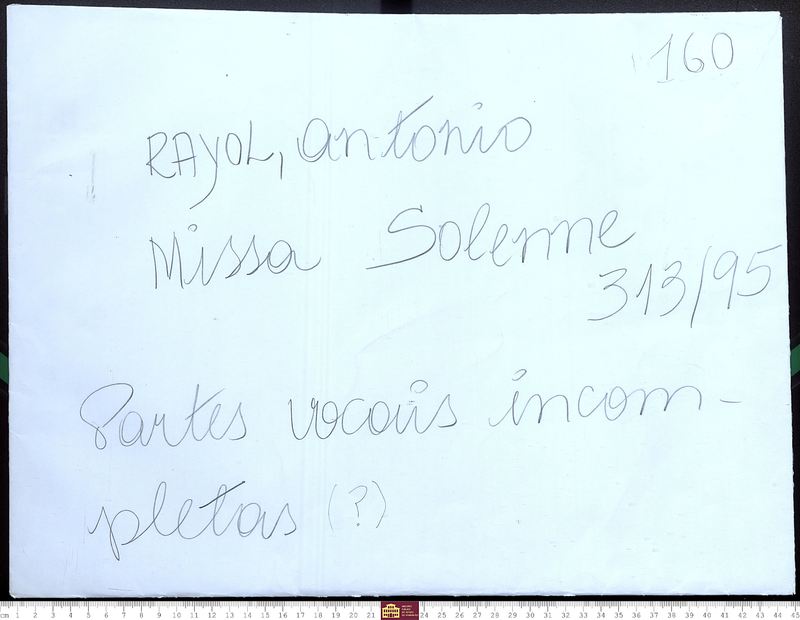 160
RAYOL, Antonio
Missa Solemne
313/95
Partes vocais incom-
pletas (?)
cm 1 2 3 4 5 6 7 8 9 10 11 12 13 14 15 16 17 18 19 20 21 24 25 26 27 28 29 30 31 32 33 34 35 36 37 38 39 40 41 42 43 44 45